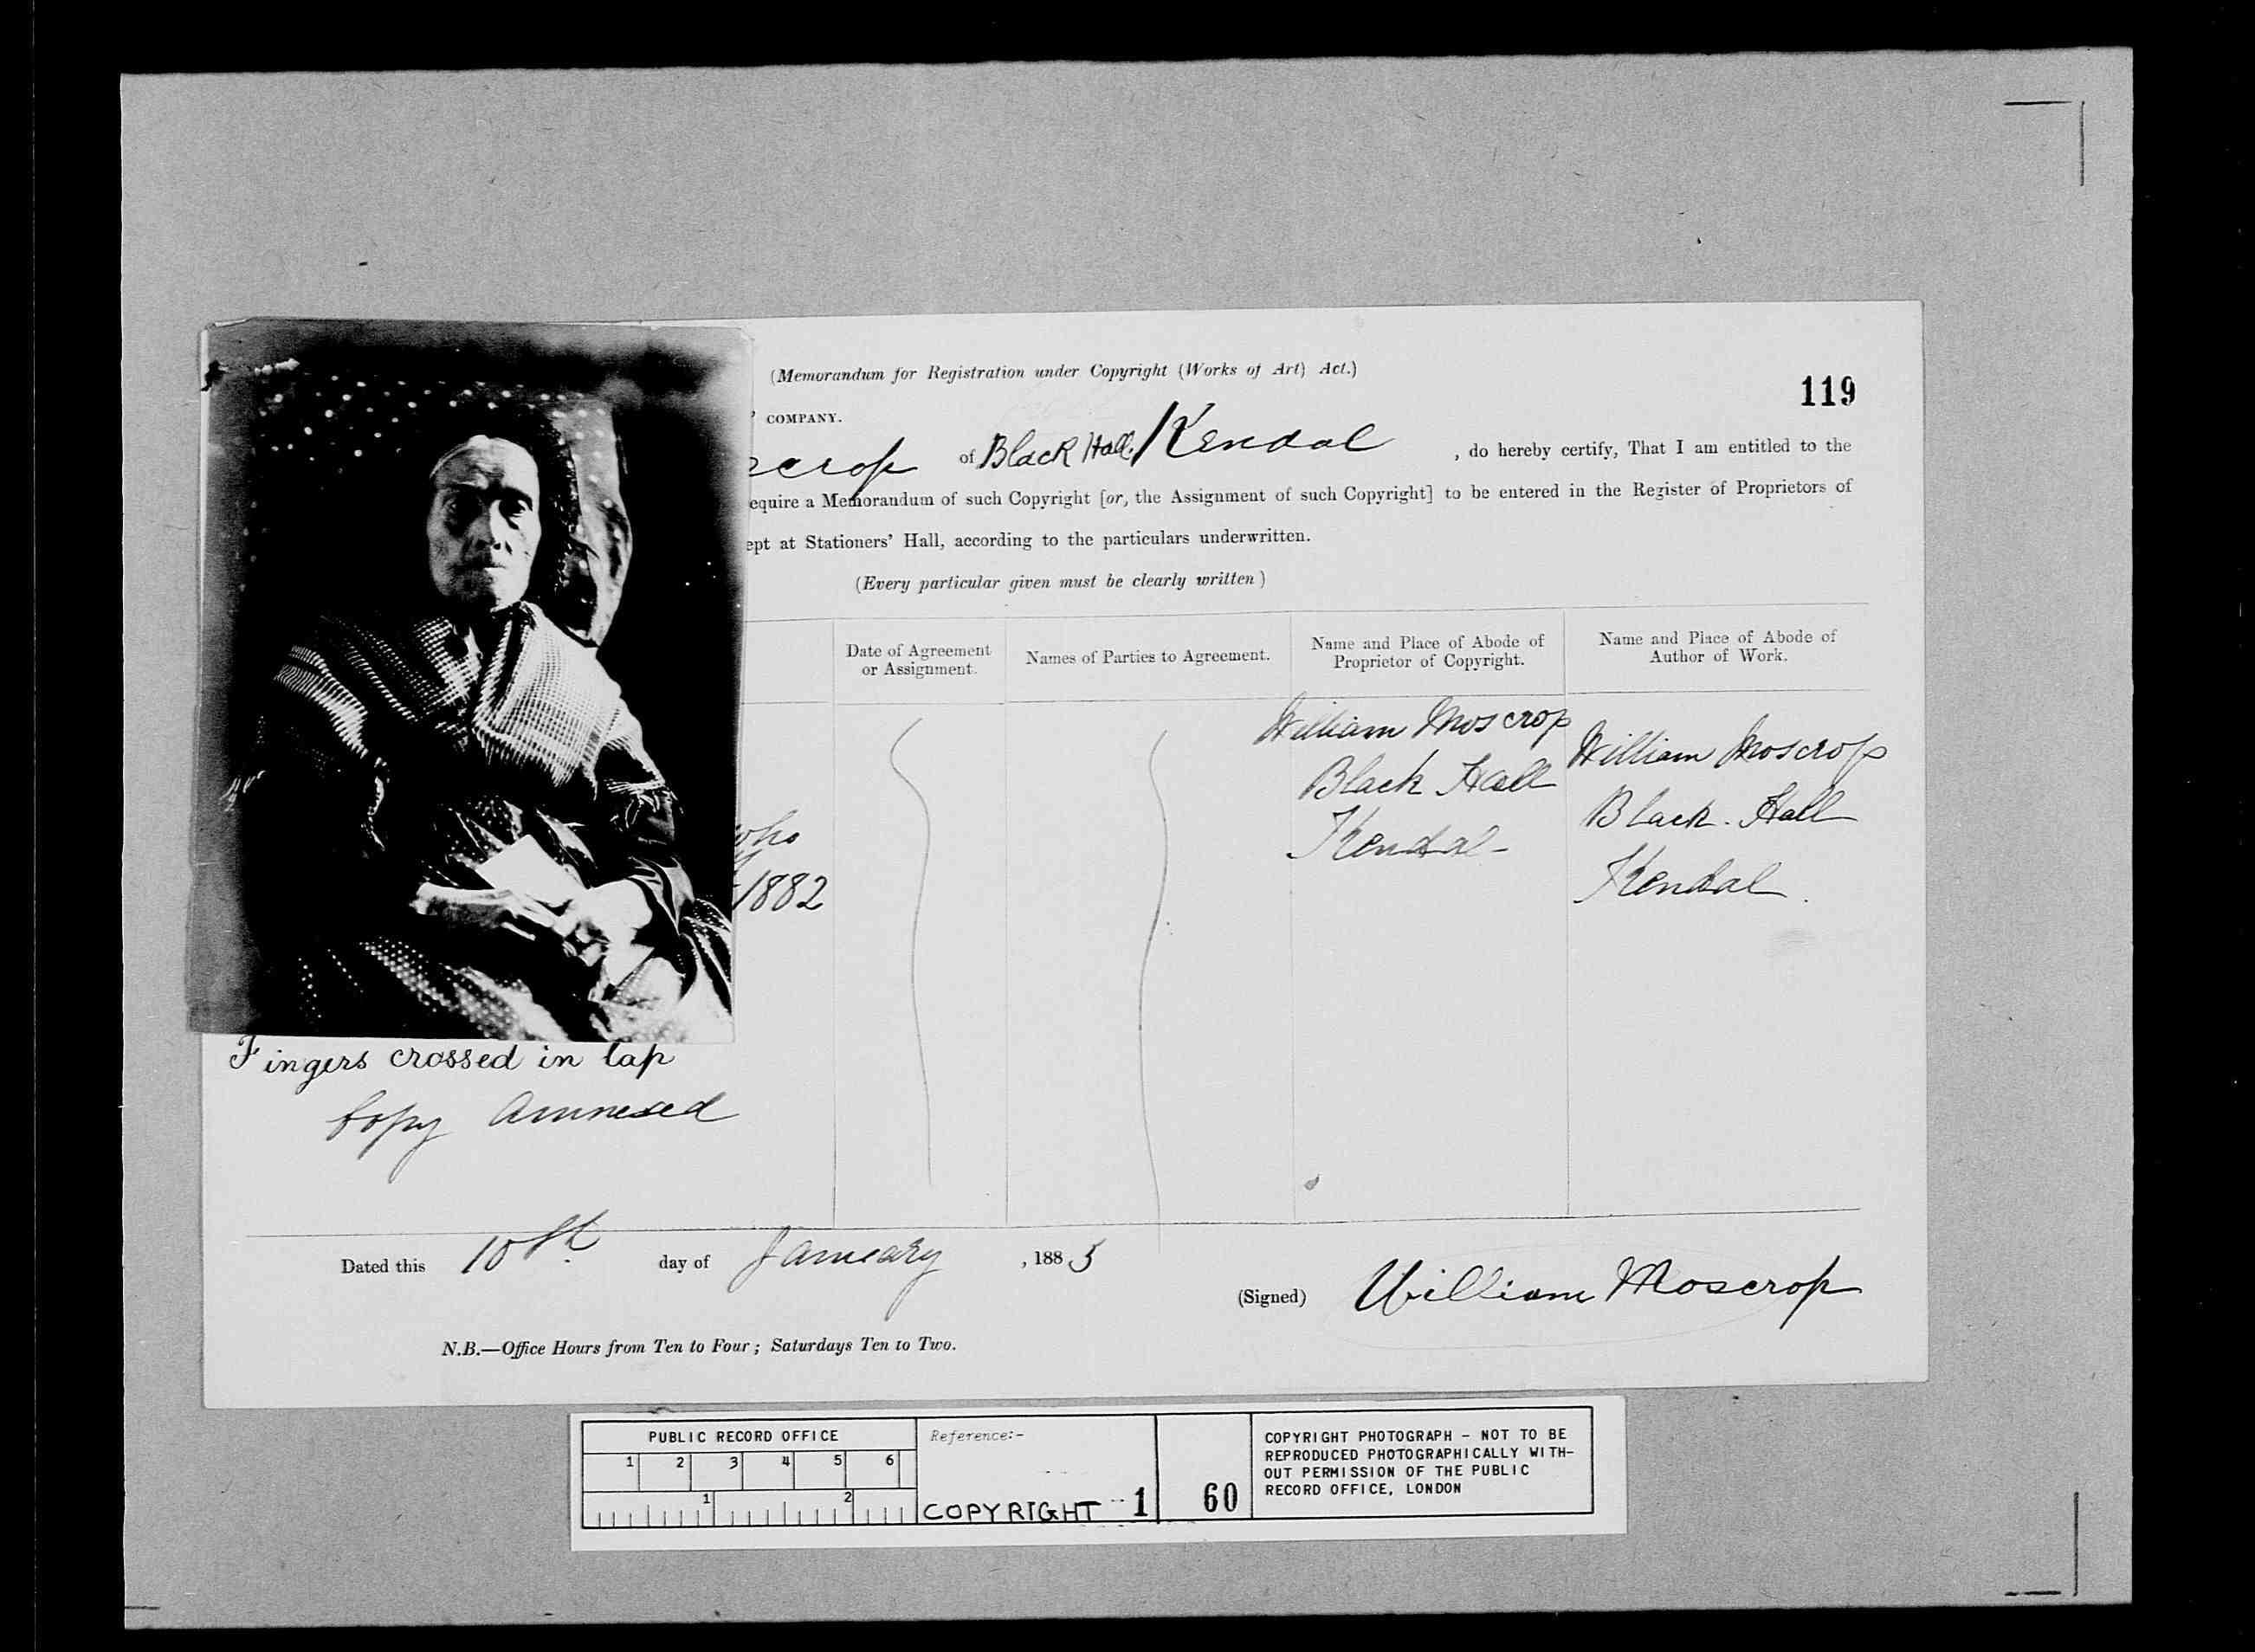 (Memorandum for Registration under Copyright (Works of Art) Act.)
119
' COMPANY.
scrop of Black Hall Kendal , do hereby certify, That I am entitled to the
equire a Memorandum of such Copyright [or, the Assignment of such Copyright] to be entered in the Register of Proprietors of
ept at Stationers' Hall, according to the particulars underwritten.
(Every particular given must be clearly written)
Date of Agreement
or Assignment.
Names of Parties to Agreement.
Name and Place of Abode of
Proprietor of Copyright.
Name and Place of Abode of
Author of Work.
who
1882
William Moscrop
Black Hall
Kendal
William Moscrop
Black Hall
Kendal
Fingers crossed in lap
Copy annexed
Dated this 10th day of January , 1885
(Signed) William Moscrop
N.B.—Office Hours from Ten to Four; Saturdays Ten to Two.
PUBLIC RECORD OFFICE
1 2 3 4 5 6
1 2
Reference:-
COPYRIGHT 1
60
COPYRIGHT PHOTOGRAPH - NOT TO BE
REPRODUCED PHOTOGRAPHICALLY WITH-
OUT PERMISSION OF THE PUBLIC
RECORD OFFICE, LONDON